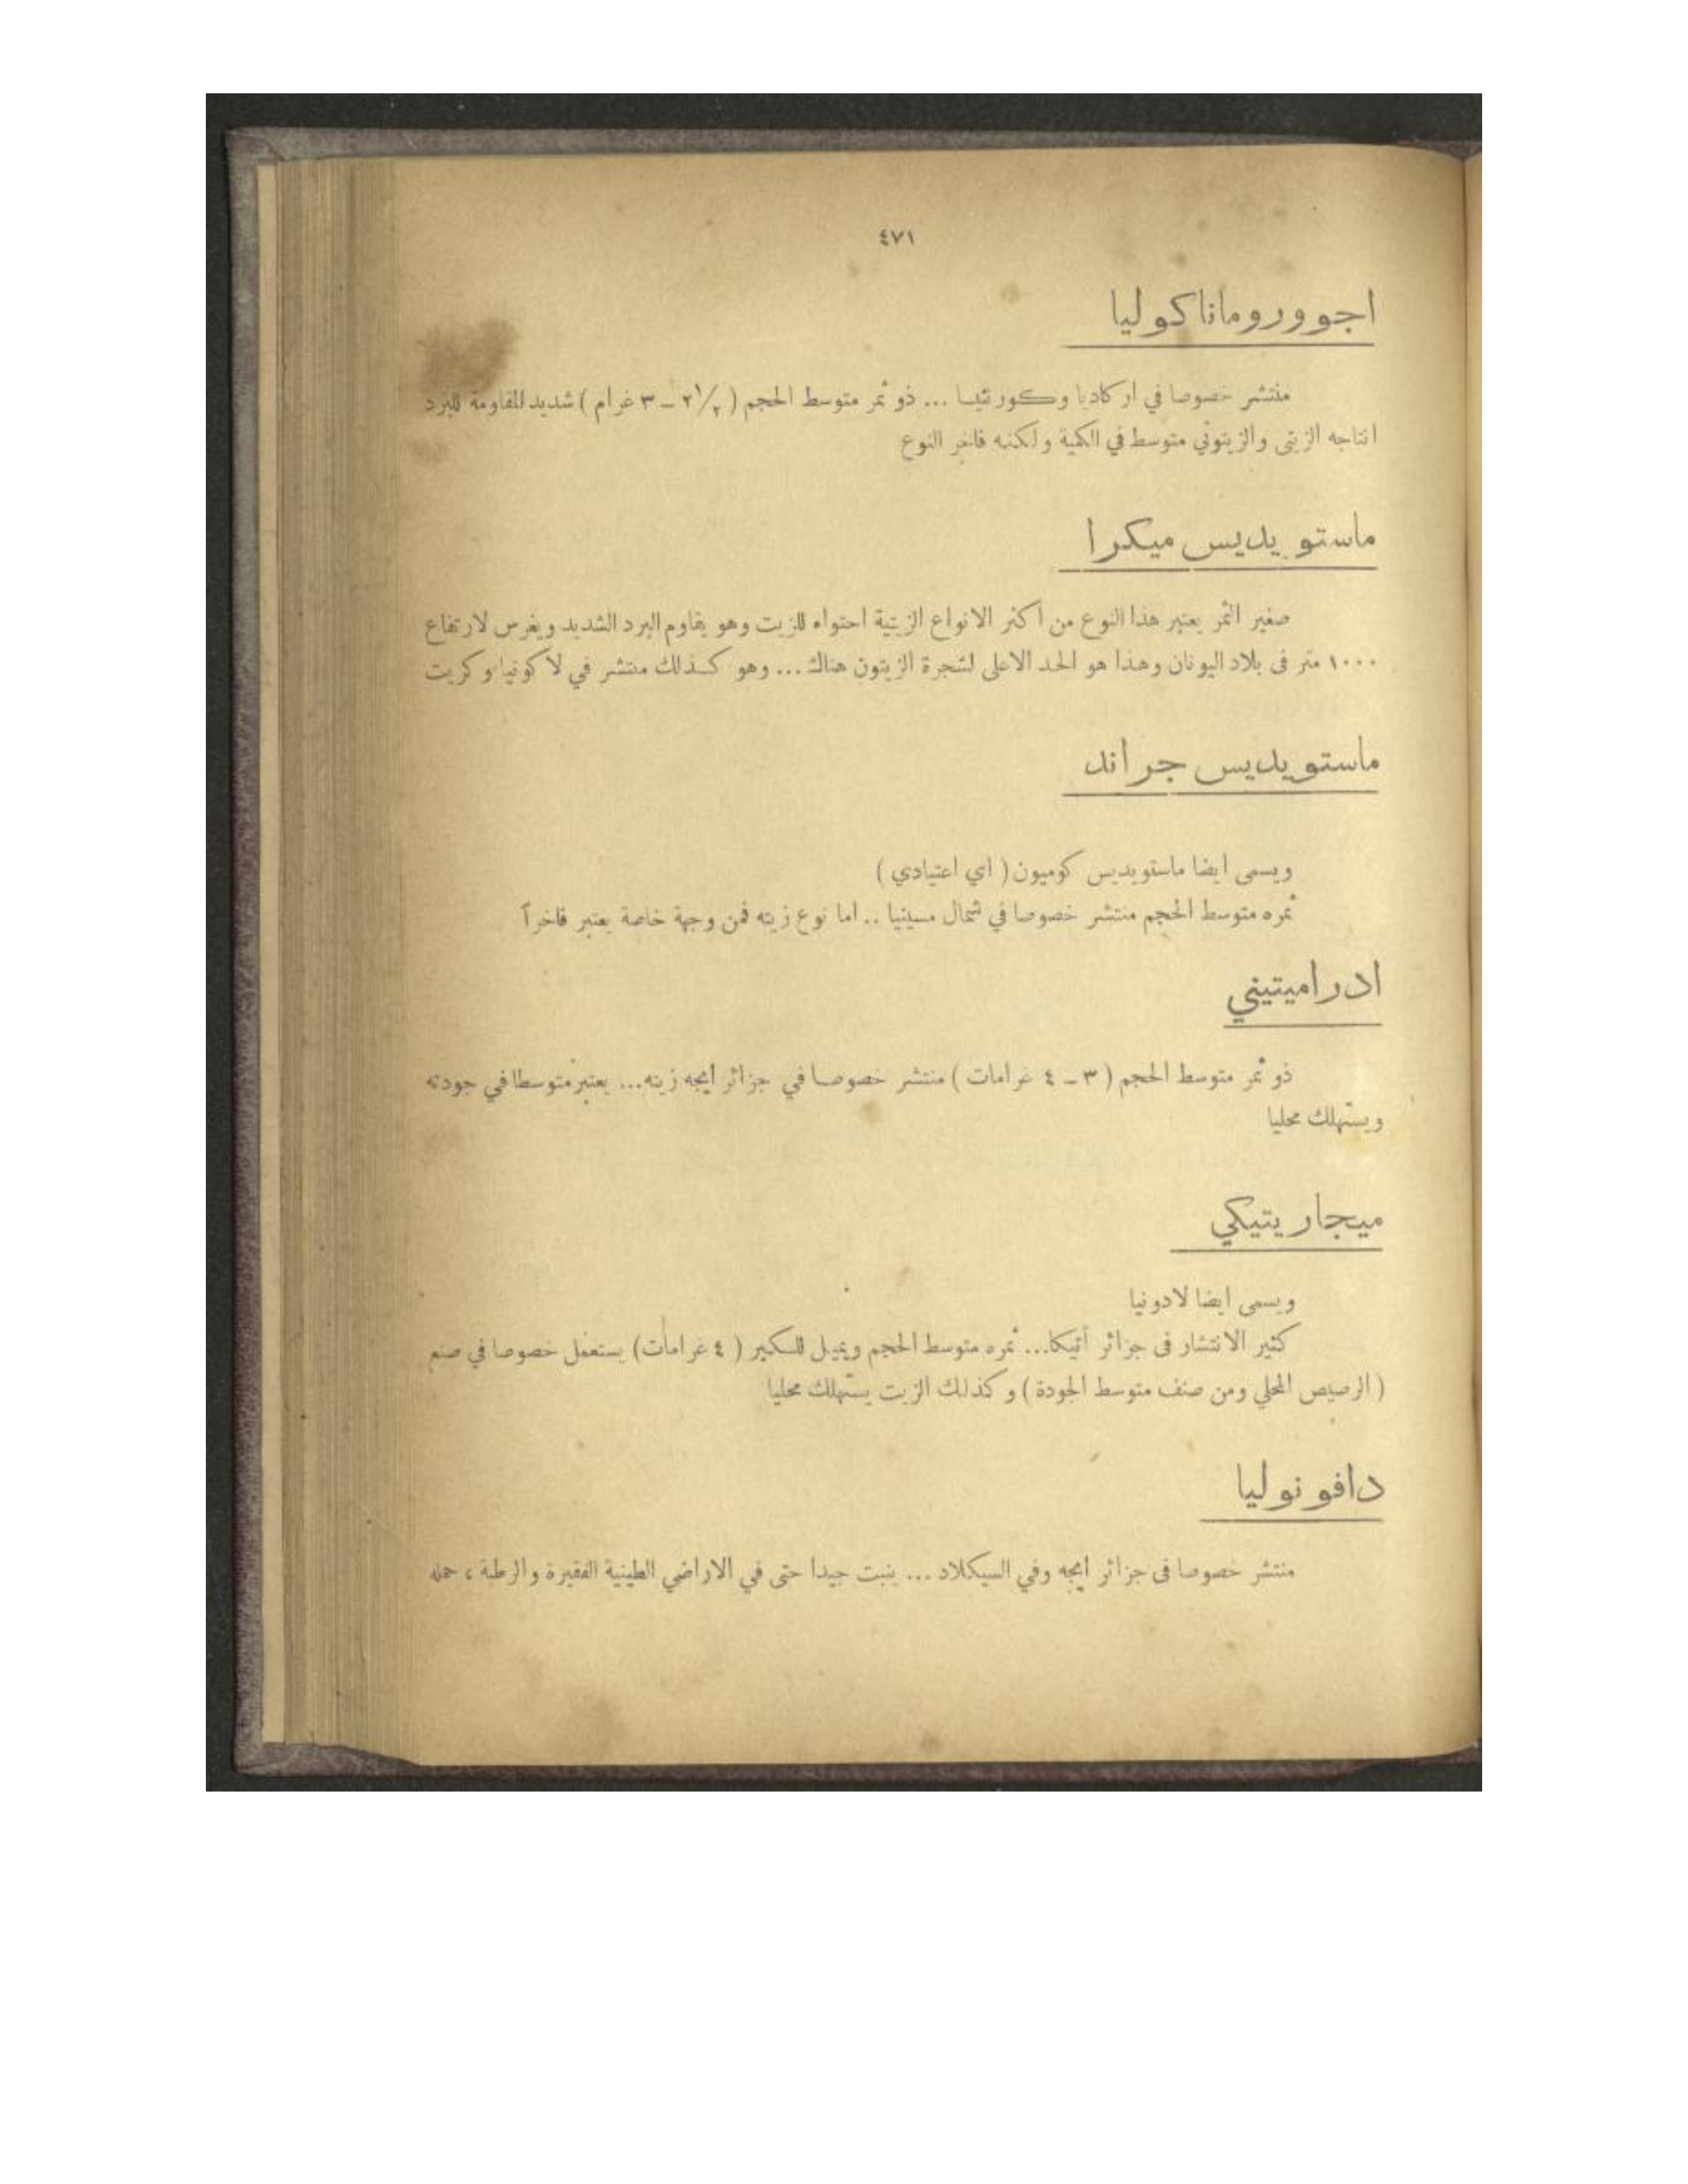 ٤٧١
اجوورومانا كوليا
منتشر خصوصا في اركاديا وكورنثيا ... ذو ثمر متوسط الحجم ( ٢١/٢ – ٣ غرام ) شديد المقاومة للبرد
انتاجه الزيتى والزيتوني متوسط في الكمية ولكنه فاخر النوع
ماستويديس ميكرا
صغير الثمر يعتبر هذا النوع من اكثر الانواع الزيتية احتواء للزيت وهو يقاوم البرد الشديد ويغرس لارتفاع
١٠٠٠ متر فى بلاد اليونان وهذا هو الحد الاعلى لشجرة الزيتون هناك ... وهو كذلك منتشر في لاكونيا وكريت
ماستويديس جراند
ويسمى ايضا ماستويديس كوميون ( اي اعتيادي )
ثمره متوسط الحجم منتشر خصوصا في شمال مسينيا .. اما نوع زيته فمن وجهة خاصة يعتبر فاخراً
ادراميتيني
ذو ثمر متوسط الحجم ( ٣ – ٤ غرامات ) منتشر خصوصا في جزائر ايجه زيته... يعتبر متوسطا في جودته
ويستهلك محليا
ميجاريتيكي
ويسمى ايضا لادونيا
كثير الانتشار فى جزائر أتيكا... ثمره متوسط الحجم ويميل للكبير ( ٤ غرامات ) يستعمل خصوصا في صنع
( الرصيص المحلي ومن صنف متوسط الجودة ) وكذلك الزيت يستهلك محليا
دافونوليا
منتشر خصوصا فى جزائر ايجه وفي السيكلاد ... ينبت جيدا حتى في الاراضي الطينية الفقيرة والرطبة ، حمله